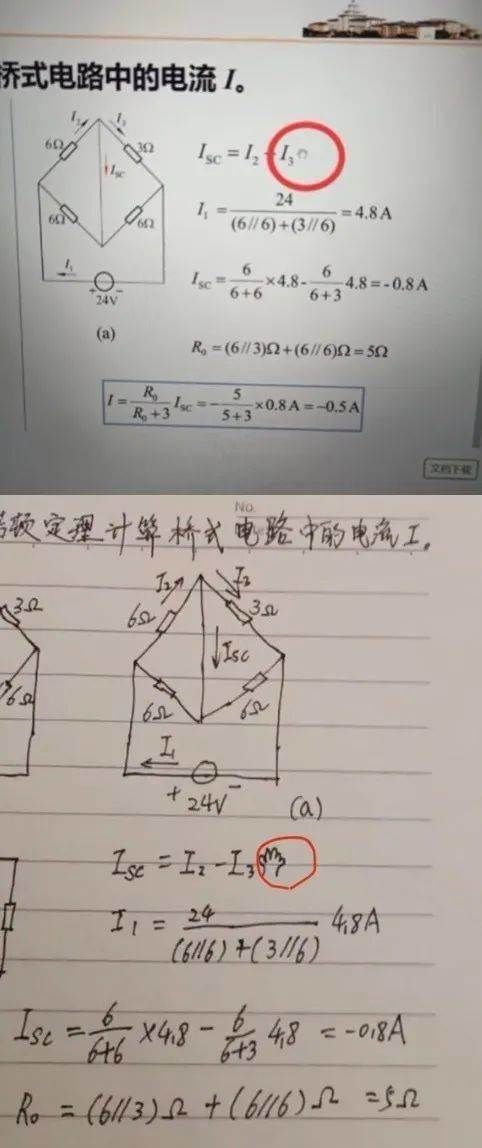 桥式电路中的电流 I。
I₂ I₃
6Ω 3Ω
I_SC
6Ω 6Ω
I₁
+ −
24V
(a)
I_SC = I₂ - I₃
I₁ = 24/((6//6)+(3//6)) = 4.8 A
I_SC = 6/(6+6) ×4.8 - 6/(6+3) 4.8 = -0.8 A
R₀ = (6//3)Ω + (6//6)Ω = 5Ω
I = R₀/(R₀+3) I_SC = - 5/(5+3) ×0.8 A = -0.5 A
文档下载
No.
顿定理计算桥式电路中的电流 I。
3Ω
6Ω
I₂ I₂
6Ω 3Ω
Isc
6Ω 6Ω
I₁
+ 24V −
(a)
Isc = I₂ - I₃
I₁ = 24/((6//6)+(3//6)) 4.8A
Isc = 6/(6+6) ×4.8 - 6/(6+3) 4.8 = -0.8A
R₀ = (6//3)Ω + (6//6)Ω =5Ω